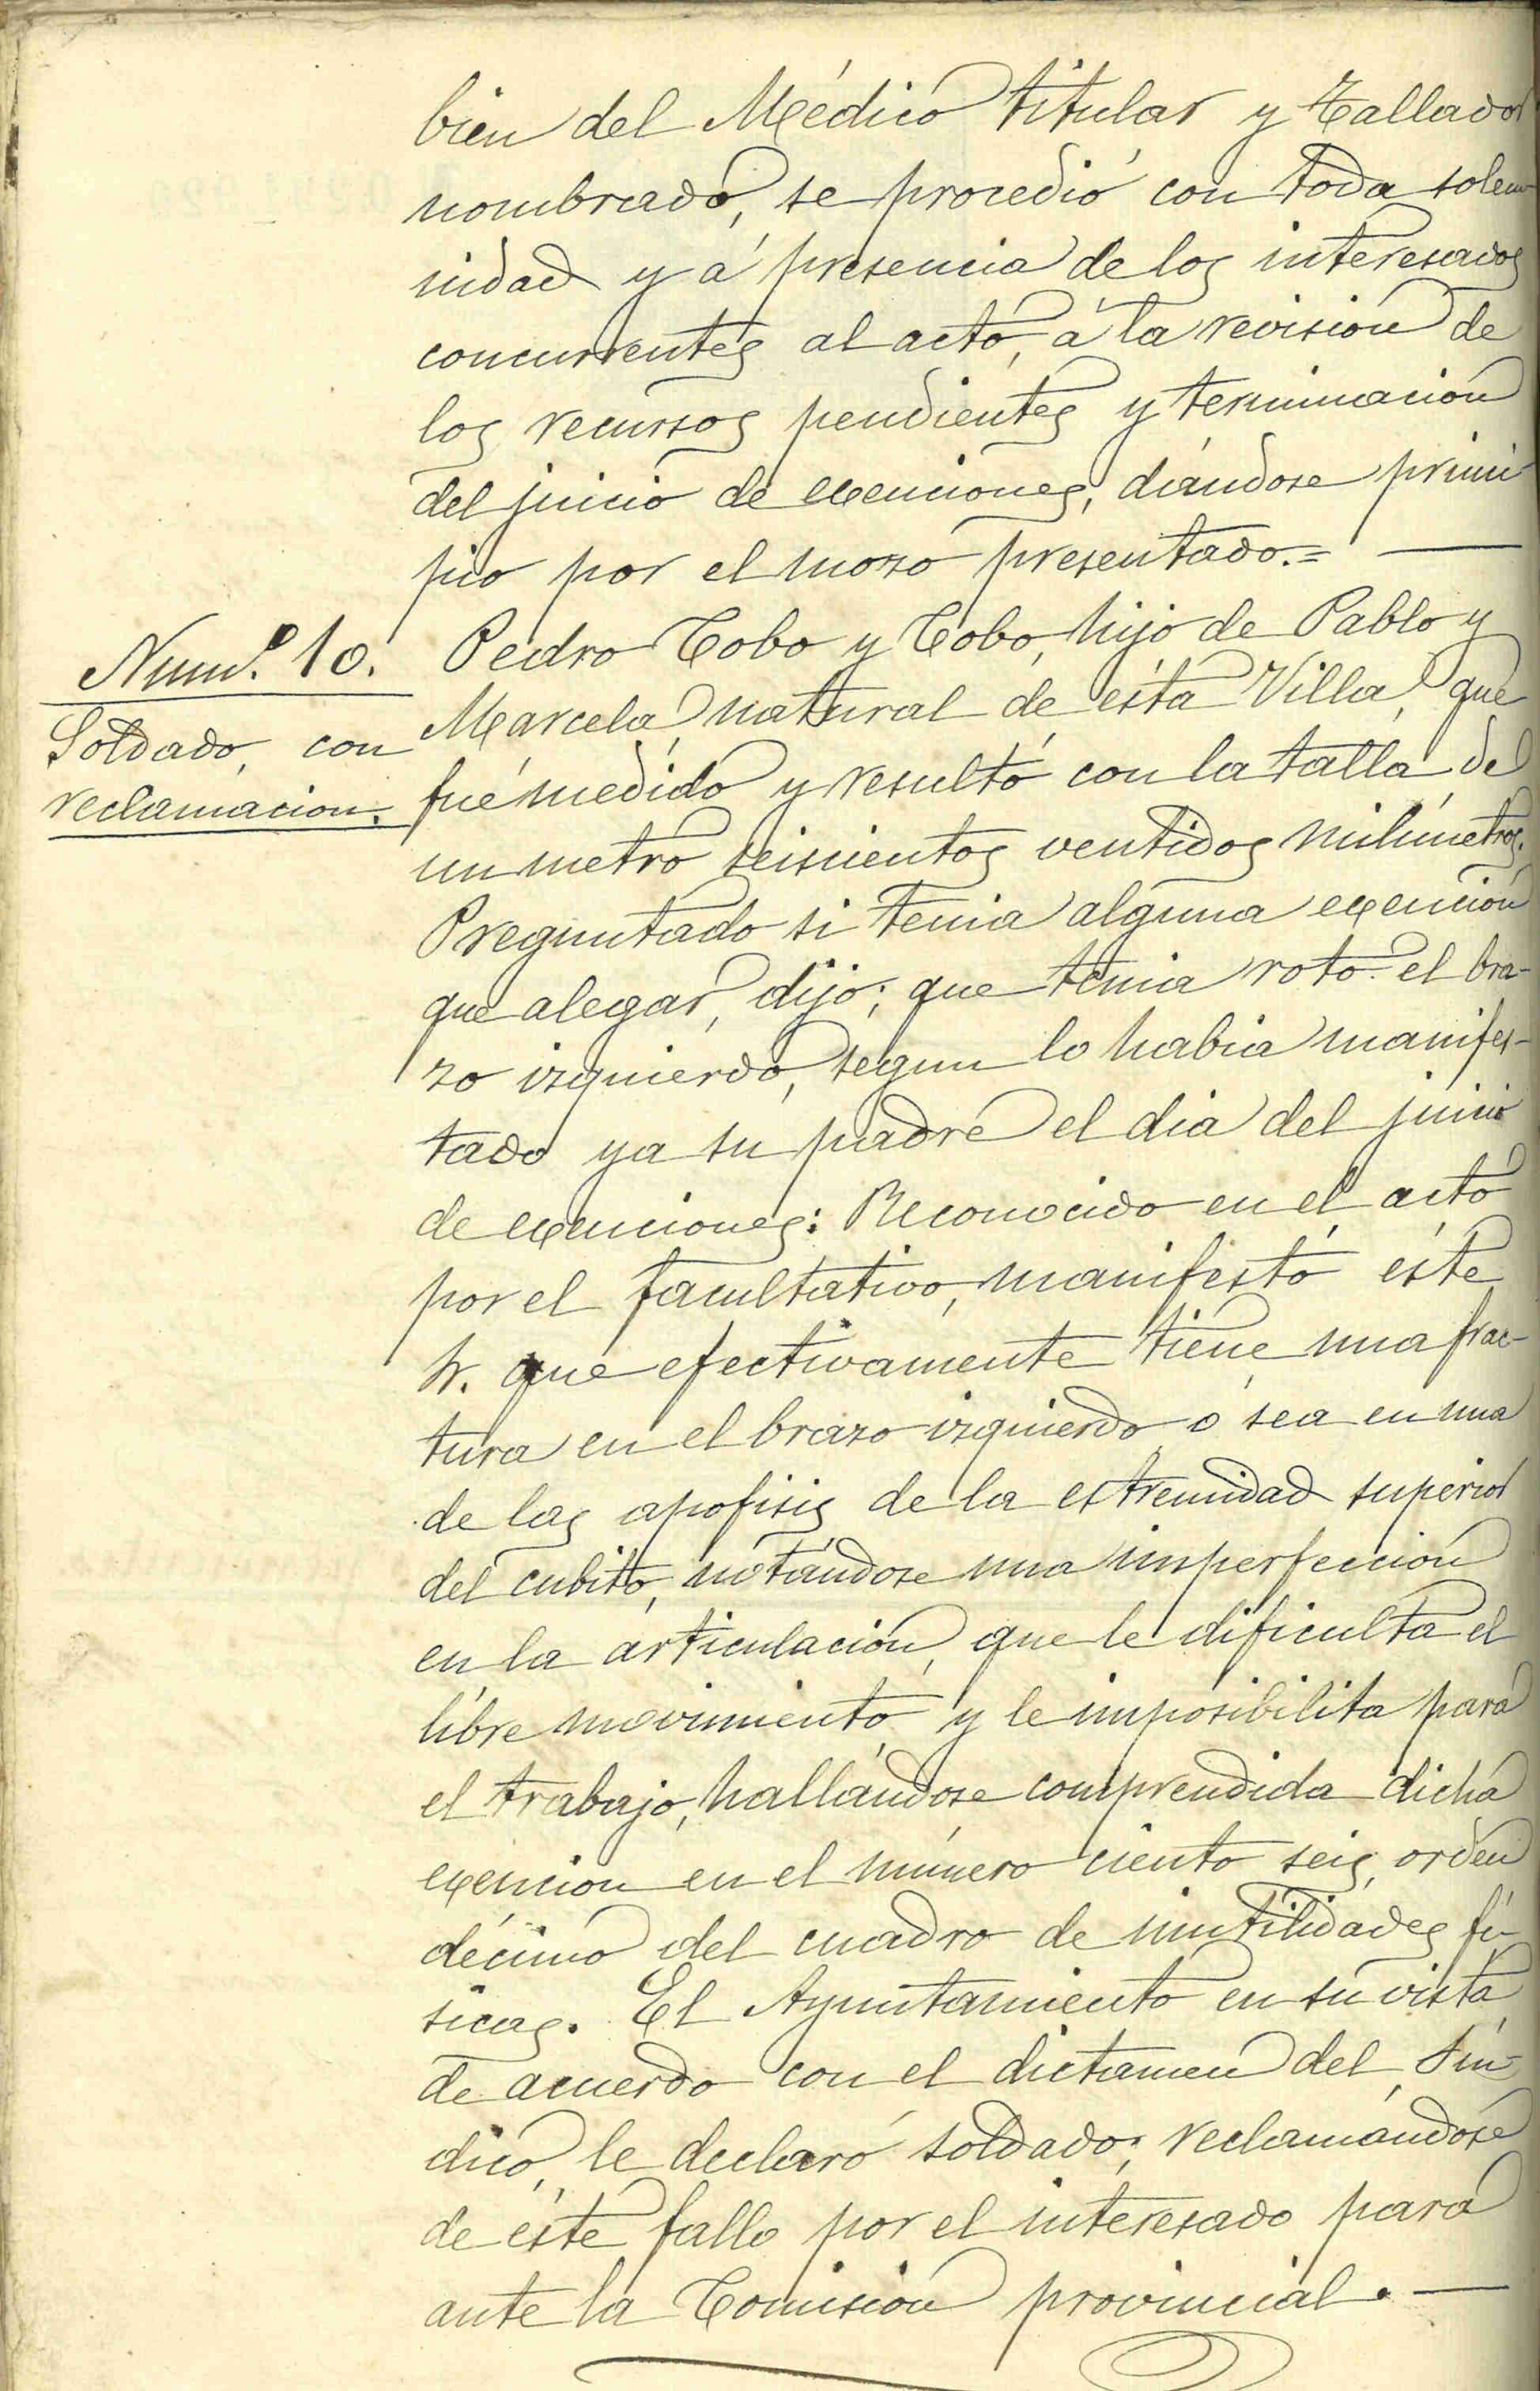 bien del Médico titular y Tallador
nombrado, se procedió con toda solem-
nidad y á presencia de los interesados
concurrentes al acto, á la revisión de
los recursos pendientes y terminación
del juicio de exenciones, diándose princi
pio por el mozo presentado.=
Num.º 10.
Soldado, con
reclamacion.
Pedro Cobo y Cobo, hijo de Pablo y
Marcela, natural de ésta Villa, que
fué medido y resultó con la talla de
un metro seiscientos ventidos milímetros.
Preguntado si tenia alguna exención
que alegar, dijo; que tenia roto el bra-
zo izquierdo, segun lo habia manifes-
tado ya su padre el dia del juicio
de exenciones: Reconocido en el acto
por el facultativo, manifestó éste
Sr. que efectivamente tiene una frac-
tura en el brazo izquierdo ó sea en una
de las apofisis de la estremidad superior
del cubito, notándose una imperfección
en la articulación, que le dificulta el
libre movimiento y le imposibilita para
el trabajo, hallándose comprendida dicha
exencion en el número ciento seis, orden
décimo del cuadro de inutilidades fí-
sicas. El Ayuntamiento en su vista
de acuerdo con el dictamen del Sín-
dico, le declaró soldado; reclamándose
de éste fallo por el interesado para
ante la Comisión provincial.